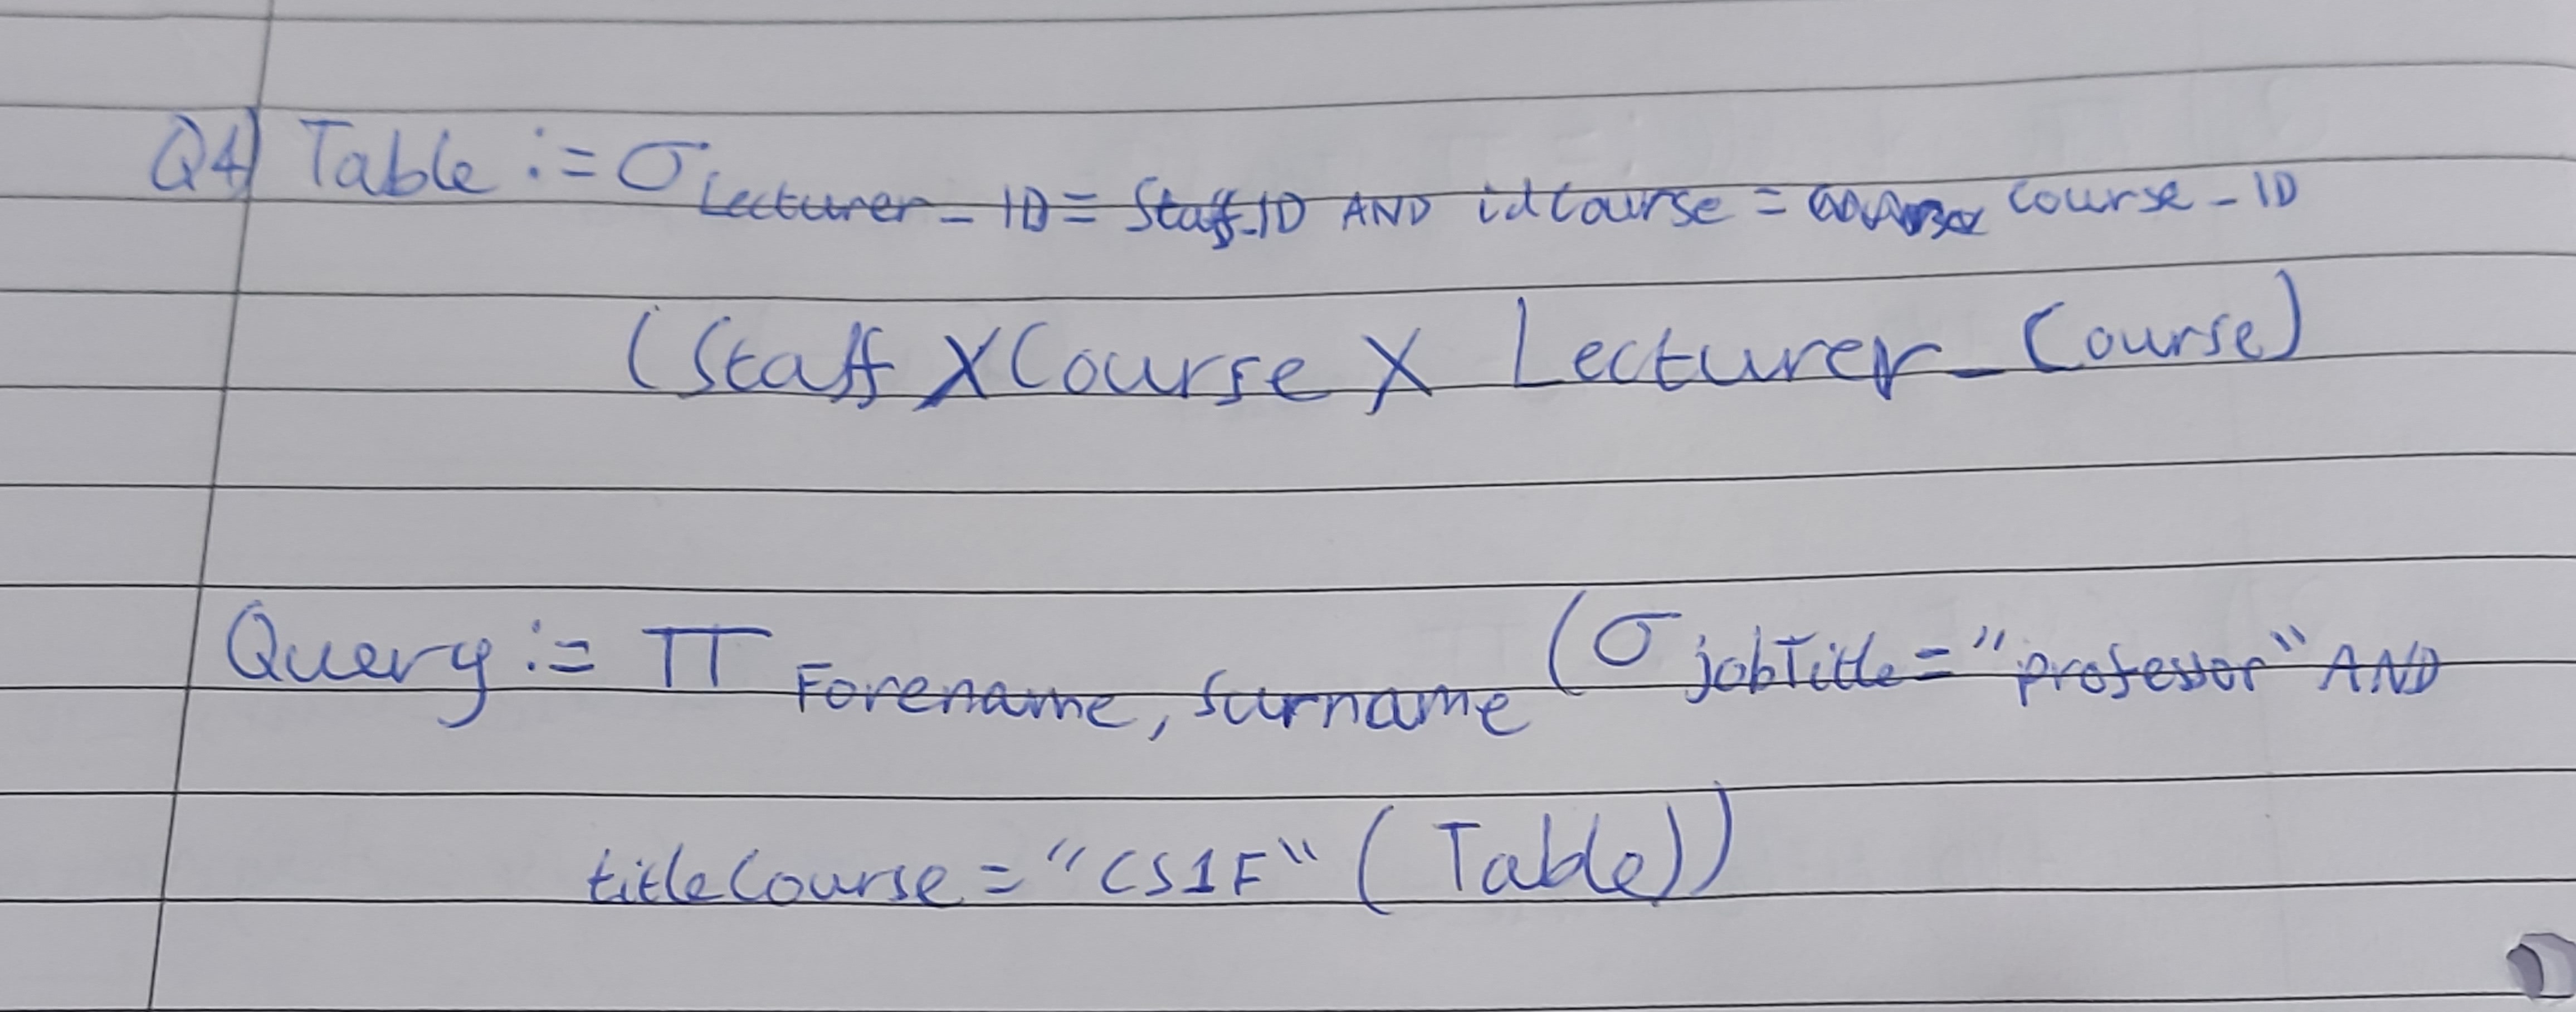 Q4) Table := σ Lecturer_ID = Staff_ID AND idCourse = Course_ID
(Staff X Course X Lecturer_Course)
Query := π Forename, Surname (σ jobTitle = "professor" AND
titleCourse = "CS1F" (Table))